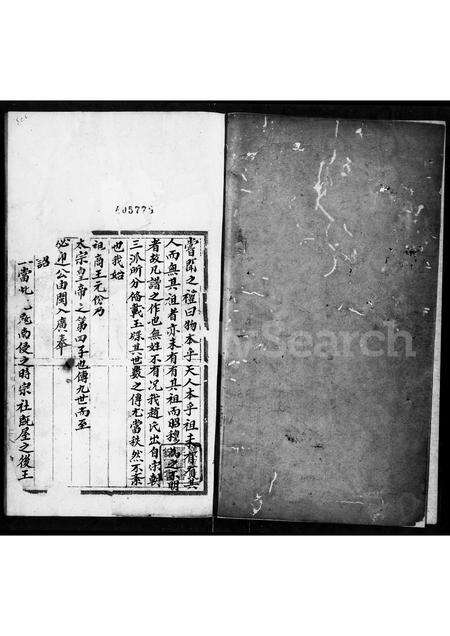 嘗聞之禮曰物本乎天人本乎祖未有負其
人而無其祖者亦未有有其祖而昭穆滿之不明
者故凡譜之作也無姓不有况我趙氏出自宋朝
三派所分條載玉牒其世數之傳尤當秩然不紊
也我始
祖商王元份乃
太宗皇帝之第四子也傳九世而至
必迎公由閩入廣奉
詔
一當北兵南侵之時宗社既屋之後王
405775
Search